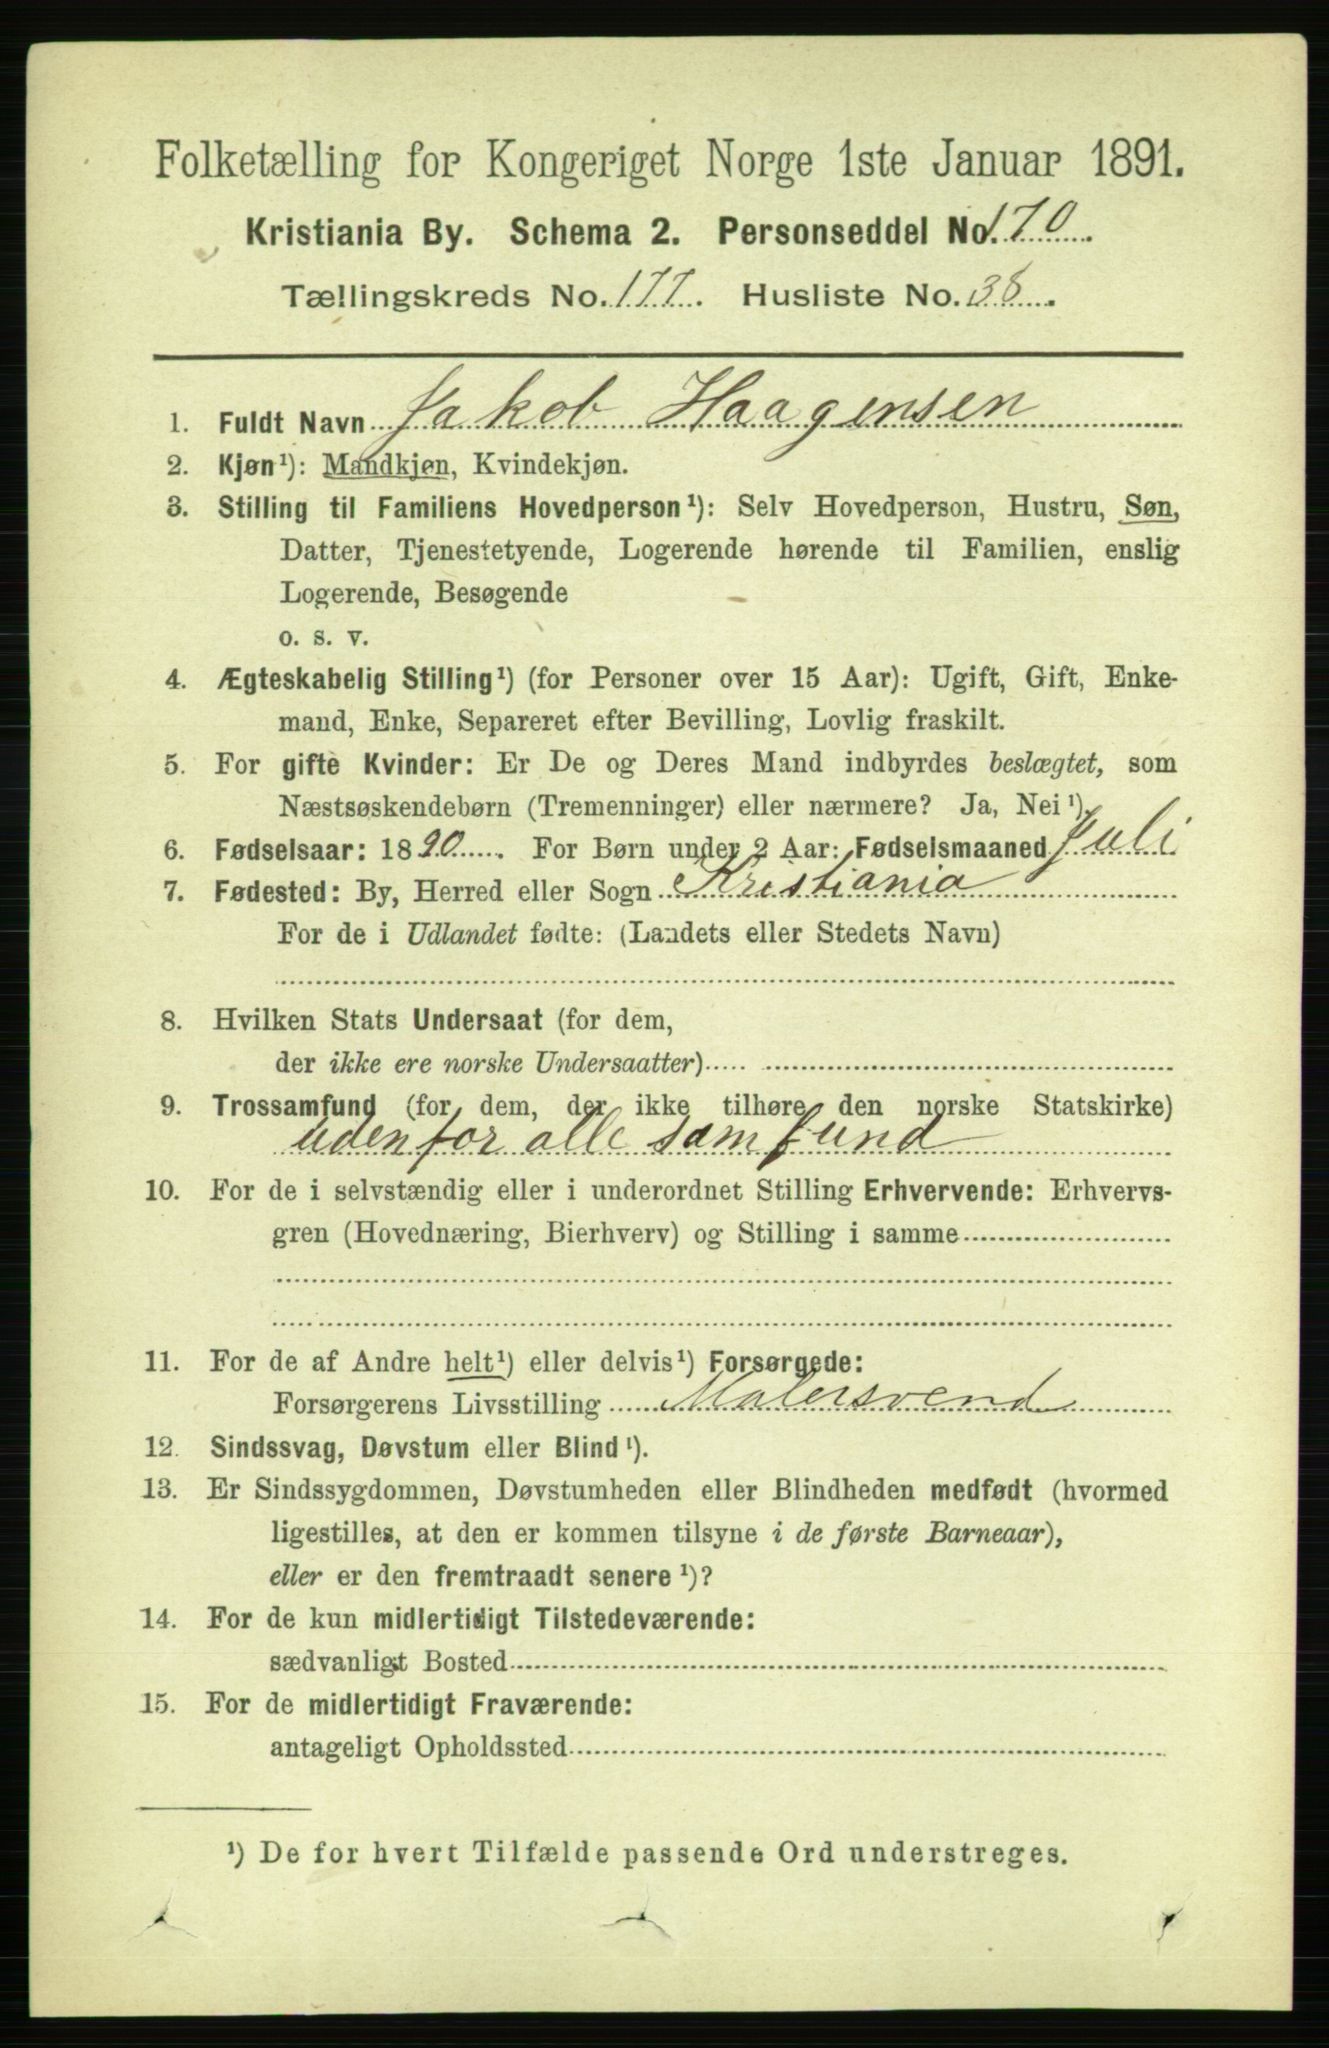 Folketælling for Kongeriget Norge 1ste Januar 1891.
Kristiania By. Schema 2. Personseddel No. 170.
Tællingskreds No. 177. Husliste No. 38.
1. Fuldt Navn Jakob Haagensen
2. Kjøn¹): Mandkjøn, Kvindekjøn.
3. Stilling til Familiens Hovedperson¹): Selv Hovedperson, Hustru, Søn,
Datter, Tjenestetyende, Logerende hørende til Familien, enslig
Logerende, Besøgende
o. s. v.
4. Ægteskabelig Stilling¹) (for Personer over 15 Aar): Ugift, Gift, Enke-
mand, Enke, Separeret efter Bevilling, Lovlig fraskilt.
5. For gifte Kvinder: Er De og Deres Mand indbyrdes beslægtet, som
Næstsøskendebørn (Tremenninger) eller nærmere? Ja, Nei¹).
6. Fødselsaar: 1890. For Børn under 2 Aar: Fødselsmaaned Juli
7. Fødested: By, Herred eller Sogn Kristiania
For de i Udlandet fødte: (Landets eller Stedets Navn)
8. Hvilken Stats Undersaat (for dem,
der ikke ere norske Undersaatter)
9. Trossamfund (for dem, der ikke tilhøre den norske Statskirke)
udenfor alle samfund
10. For de i selvstændig eller i underordnet Stilling Erhvervende: Erhvervs-
gren (Hovednæring, Bierhverv) og Stilling i samme
11. For de af Andre helt¹) eller delvis¹) Forsørgede:
Forsørgerens Livsstilling Malersvend
12. Sindssvag, Døvstum eller Blind¹).
13. Er Sindssygdommen, Døvstumheden eller Blindheden medfødt (hvormed
ligestilles, at den er kommen tilsyne i de første Barneaar),
eller er den fremtraadt senere¹)?
14. For de kun midlertidigt Tilstedeværende:
sædvanligt Bosted
15. For de midlertidigt Fraværende:
antageligt Opholdssted
¹) De for hvert Tilfælde passende Ord understreges.